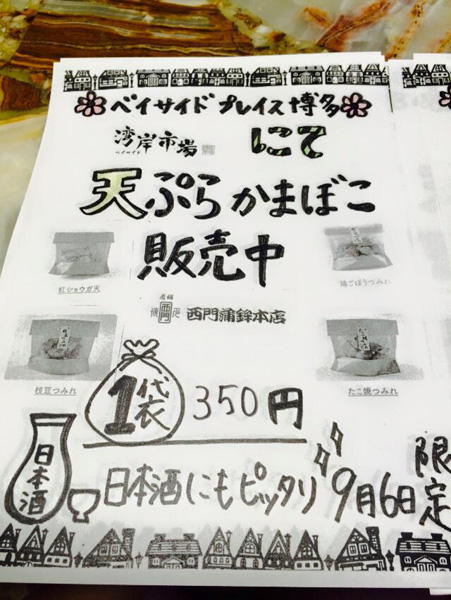 ベイサイドプレイス博多
湾岸市場
ベイサイド
にて
天ぷらかまぼこ
販売中
紅ショウガ天
老舗
西門
西門蒲鉾本店
枝豆つみれ
たこ焼つみれ
1袋 350円
日本酒
日本酒にもピッタリ
9月6日
限定